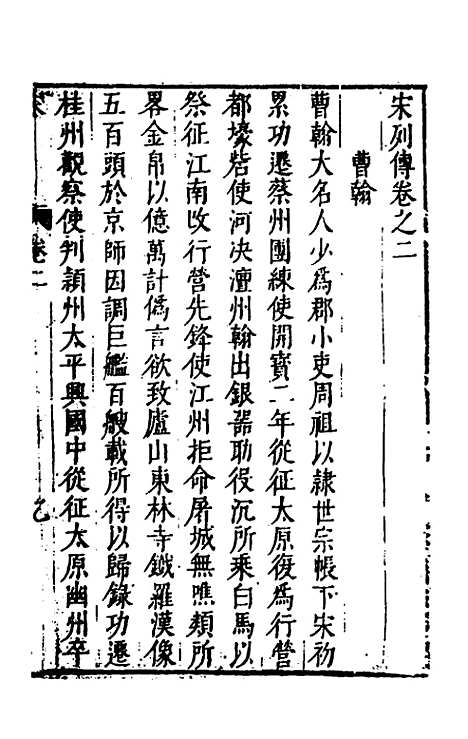 宋列傳卷之二
曹翰
曹翰大名人少爲郡小吏周祖以隷世宗帳下宋初
累功遷蔡州團練使開寳二年從征太原復爲行營
都壕砦使河决澶州翰出銀器助役沉所乗白馬以
祭征江南攺行營先鋒使江州拒命屠城無噍類所
畧金帛以億萬計僞言欲致廬山東林寺鐵羅漢像
五百頭於京師因調巨艦百艘載所得以歸錄功遷
桂州觀察使判潁州太平興國中從征太原幽州卒
卷二